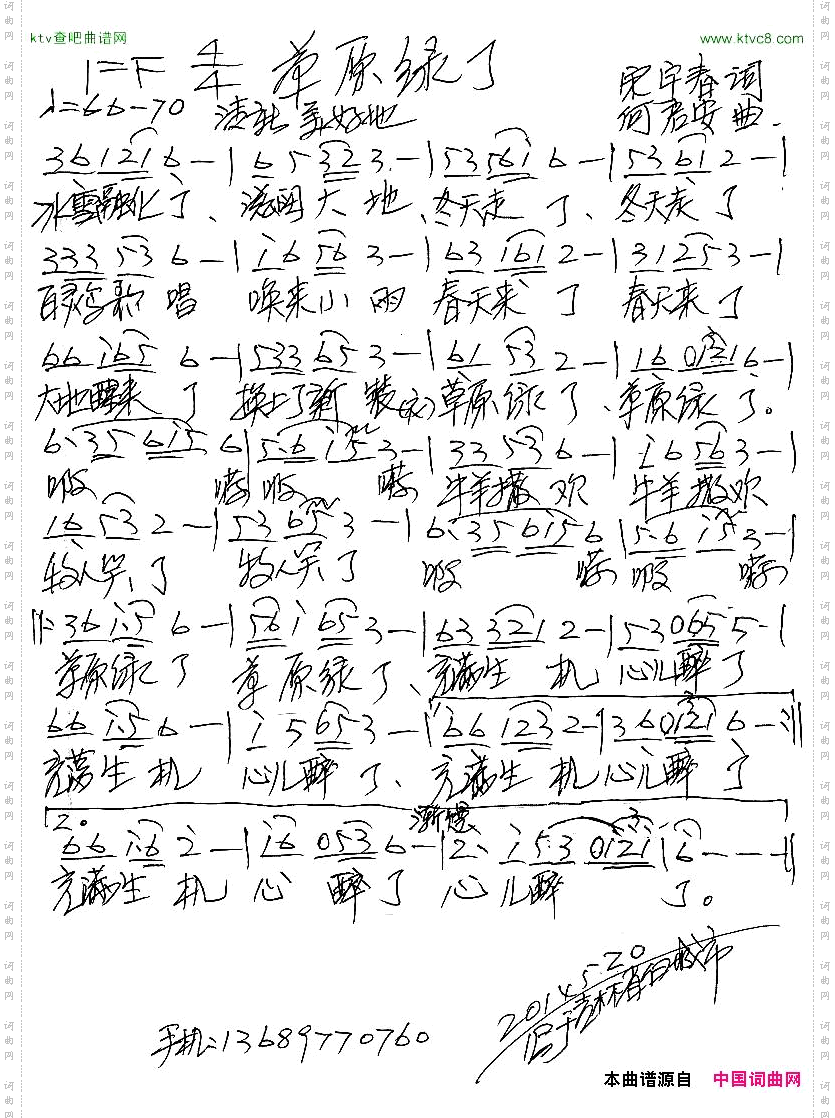 ktv查吧曲谱网
www.ktvc8.com
1=F 4/4 草原绿了
宋宇春 词
♩=66-70 清新 美好地
何君安 曲
36 121 6 - | 65 323 - | 53 561 6 - | 53 61 2 - |
冰雪融化了、滋润大地、冬天走了、冬天走了
333 53 6 - | i6 56 3 - | 63 161 2 - | 31 25 3 - |
百灵鸟歌唱 唤来小雨 春天来了 春天来了
66 i65 6 - | 533 65 3 - | 61 53 2 - | 16 0121 6 - |
大地醒来了 换上了新装 草原绿了、草原绿了。
6· 35 615 6 | 5·6 i5 3 - | 33 53 6 - | i6 56 3 - |
牛羊撒欢 牛羊撒欢
16 53 2 - | 53 65 3 - | 6· 35 615 6 | 5·6 i5 3 - |
牧人笑了 牧人笑了
‖: 36 i·5 6 - | 56 i 65 3 - | 63 321 2 - | 53 065 5 - |
草原绿了 草原绿了、充满生机 心儿醉了
66 i·5 6 - | i 5 65 3 - | 66 123 2 - | 36 0121 6 - :‖
充满生机 心儿醉了、充满生机 心儿醉了
2。 渐慢
66 i·6 2 - | i6 053 6 - | 2· i 5·3 0121 | 6 - - - ‖
充满生机 心醉了 心儿醉了。
2014.5.20
吉林省白城市
手机:13689770760
本曲谱源自 中国词曲网
词曲网